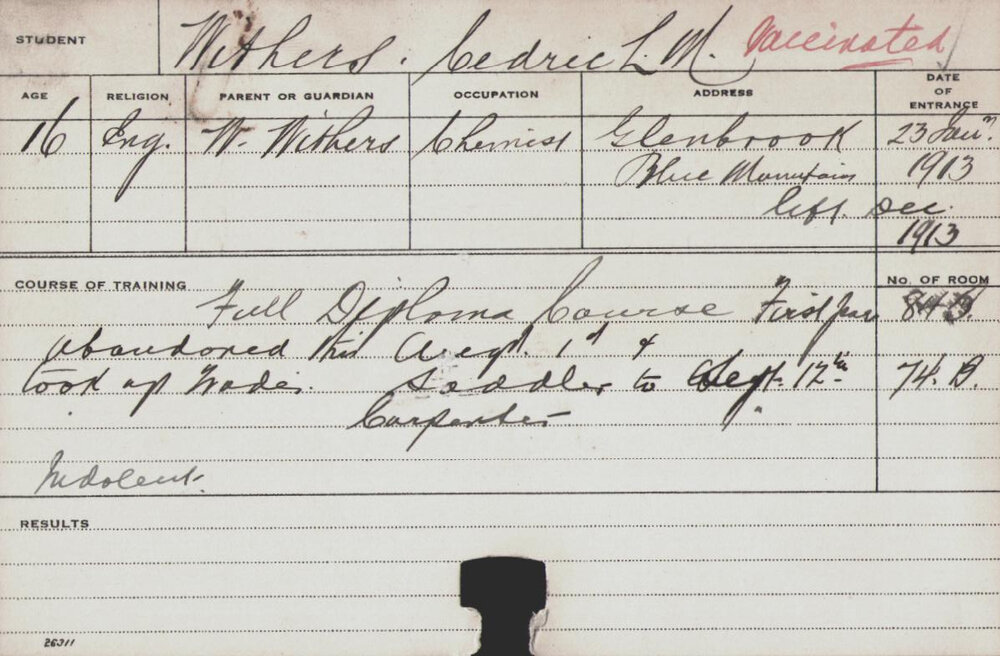 STUDENT Withers. Cedric L. M. Vaccinated
AGE RELIGION PARENT OR GUARDIAN OCCUPATION ADDRESS DATE OF ENTRANCE
16 Eng. W. Withers Chemist Glenbrook 23 Jany.
Blue Mountains 1913
left Dec.
1913
COURSE OF TRAINING No. OF ROOM
Full Diploma Course First year 84 B.
abandoned this Augt. 1st &
took up trades. Saddler to Sept. 12th 74. B.
Carpenter "
Indolent.
RESULTS
26311